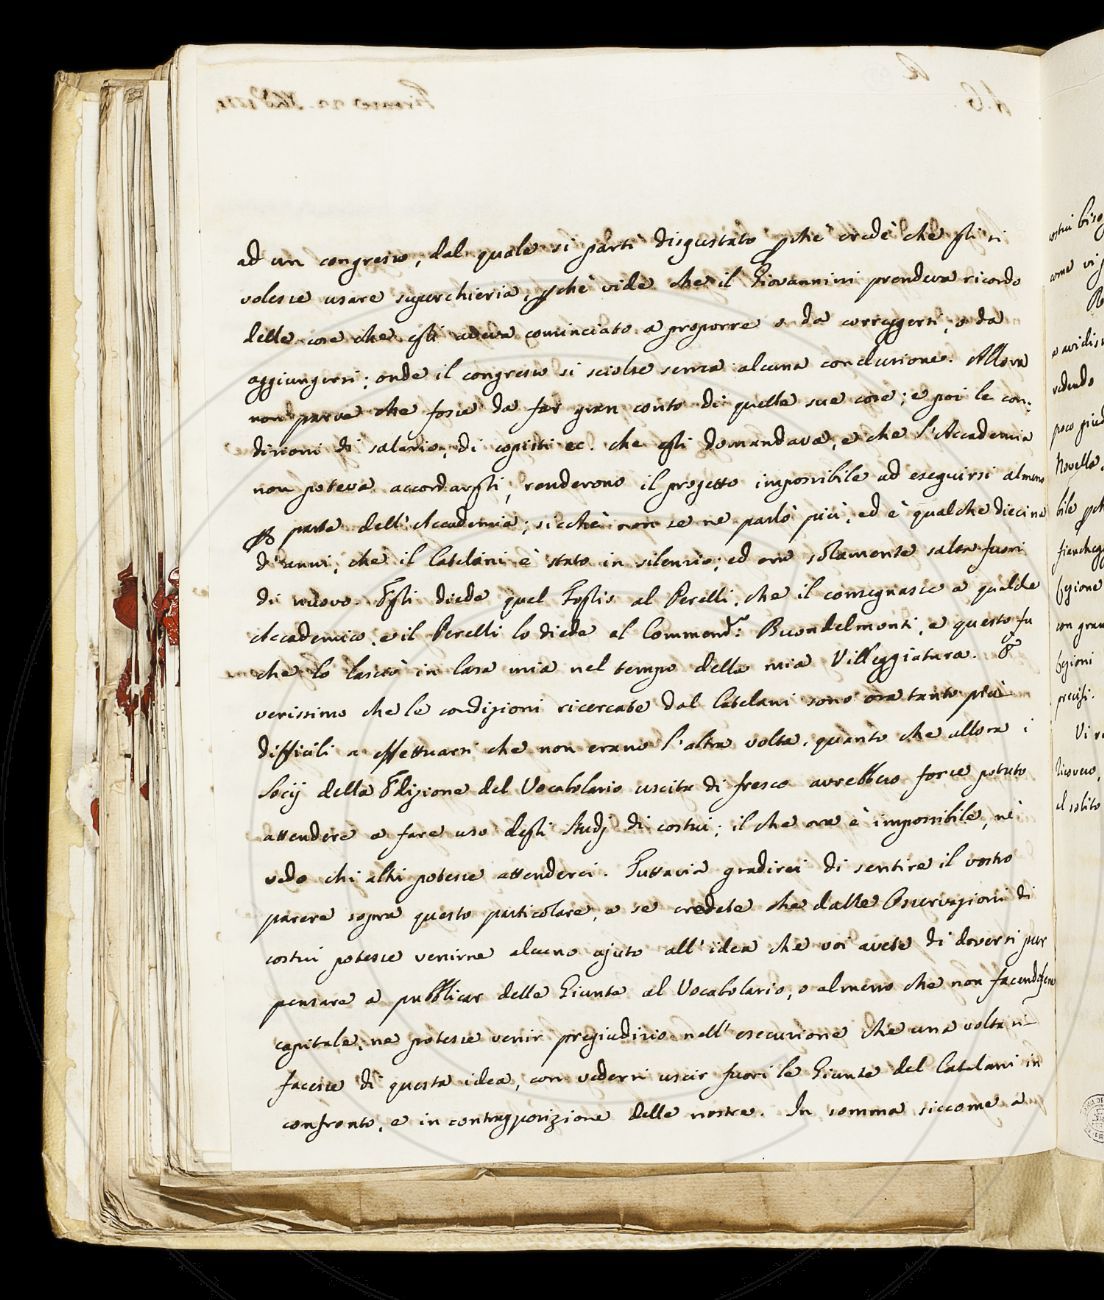 ad un congresso, dal quale si partì disgustato pchè credè che gli si
volesse usare superchieria, pchè vide che il Giovannini prendeva ricordo
delle cose che egli aveva cominciato a proporre o da correggersi, o da
aggiungersi; onde il congresso si sciolse senza alcuna conclusione. Allora
non parve che fosse da far gran conto di quelle sue cose; e poi le con:
dizioni di salario, di copisti ec. che egli domandava, e che l'Accademia
non poteva accordargli, renderono il progetto impossibile ad eseguirsi almeno
p parte dell'Accademia; sicchè non se ne parlò più, ed è qualche diecina
d'anni, che il Catelani è stato in silenzio, ed ora solamente salta fuori
di nuovo. Egli diede quel Foglio al Perelli, che il consegnasse a qualche
Accademico, e il Perelli lo diede al Commend.r Buondelmonti, e questo fu
che lo lasciò in Casa mia nel tempo della mia Villeggiatura. È
verissimo che le condizioni ricercate dal Catelani sono ora tanto più
difficili a effettuarsi che non erano l'altra volta, quanto che allora i
Socij della Edizione del Vocabolario uscita di fresco avrebbero forse potuto
attendere a fare uso degli Studj di costui; il che ora è impossibile, nè
vedo chi altri potesse attenderci. Tuttavia gradirei di sentire il vostro
parere sopra questo particolare, e se credete che dalle Osservazioni di
costui potesse venirne alcuno ajuto all'idea che voi avete di doversi pur
pensare a pubblicar delle Giunte al Vocabolario, o almeno che non facendosene
capitale, ne potesse venir pregiudizio nell'esecuzione che una volta si
facesse di questa idea, con vedersi uscir fuori le Giunte del Catelani in
confronto, e in contrapposizione delle nostre. In somma siccome a